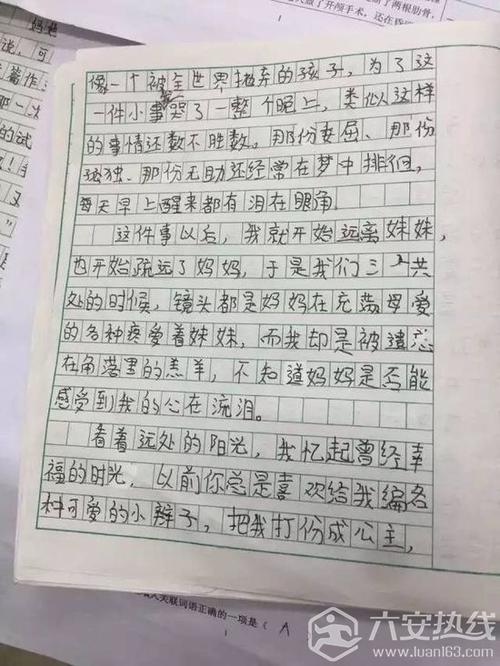 做了开颅手术，还在
两根肋骨，
妈妈
说，可
作
一次
的试
像一个被全世界抛弃的孩子，为了这
一件小事哭了一整个晚上，类似这样
的事情还数不胜数。那份委屈、那份
孤独、那份无助还经常在梦中排徊，
每天早上醒来都有泪在眼角。
这件事以后，我就开始远离妹妹，
也开始疏远了妈妈，于是我们三人共
处的时候，镜头都是妈妈在充满母爱
的各种疼爱着妹妹，而我却是被遗忘
在角落里的羔羊，不知道妈妈是否能
感受到我的心在流泪。
看着远处的阳光，我忆起曾经幸
福的时光，以前你总是喜欢给我编各
种可爱的小辫子，把我打份成公主，
关联词语正确的一项是（ A
六安热线
www.luan163.com